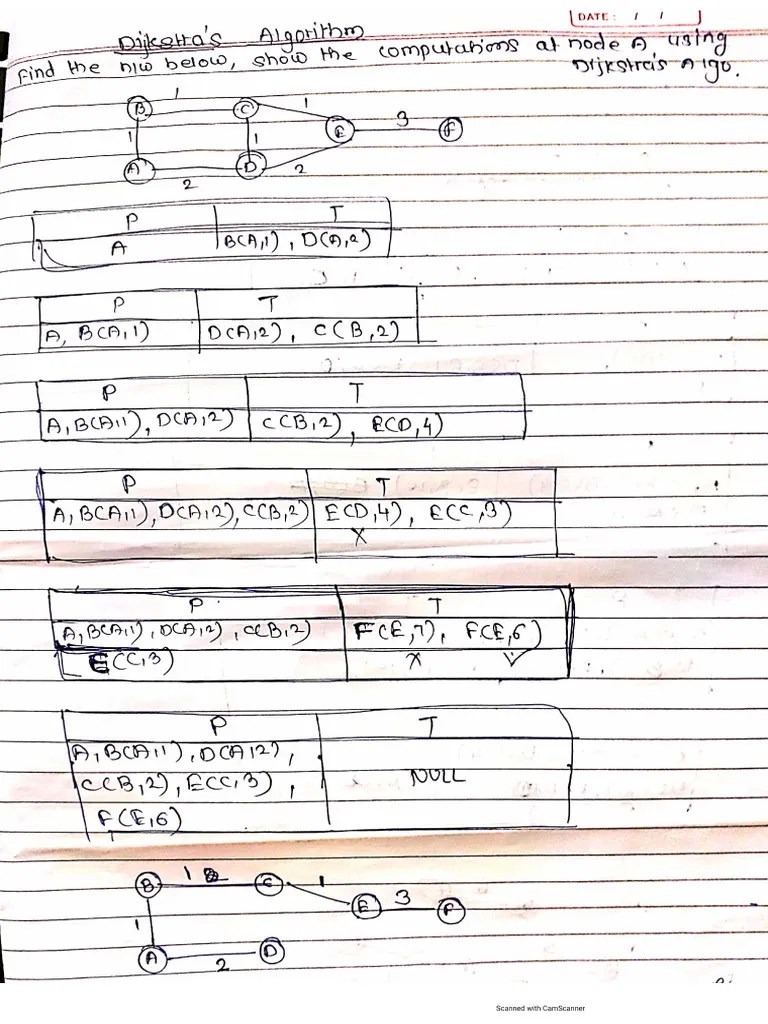 DATE: / /
Dijkstra's Algorithm
Find the n/w below, show the computations at node A, using
Dijkstra's Algo.
1
B C 1
1 1 E 3 F
A D 2
2
P T
A B(A,1), D(A,2)
P T
A, B(A,1) D(A,2), C(B,2)
P T
A, B(A,1), D(A,2) C(B,2), E(D,4)
P T
A, B(A,1), D(A,2), C(B,2) E(D,4), E(C,3)
X
P T
A, B(A,1), D(A,2), C(B,2) F(E,7), F(E,6)
E(C,3) X ✓
P T
A, B(A,1), D(A,2),
C(B,2), E(C,3), NULL
F(E,6)
B 1 C 1
E 3 F
1
A 2 D
Scanned with CamScanner